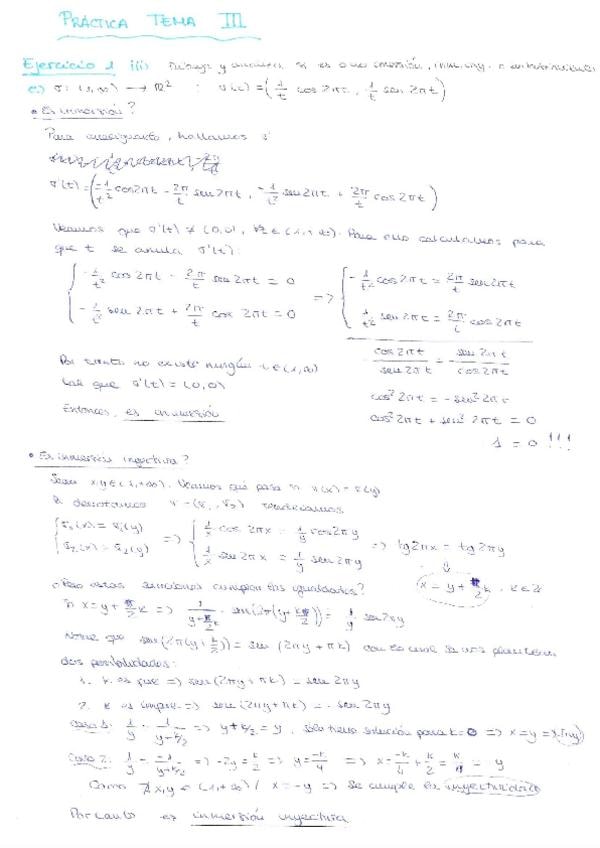 PRÁCTICA TEMA III
Ejercicio 1 iii) Dibuja y si es o no inmersión,
σ: (1,∞) → ℝ² : σ(t) = (1/t cos 2πt, 1/t sen 2πt)
• Es inmersión?
Para averiguarlo, hallamos σ'
σ'(t) = (-1/t² cos 2πt - 2π/t sen 2πt, -1/t² sen 2πt + 2π/t cos 2πt)
Veamos que σ'(t) ≠ (0,0), ∈ (1,+∞). Para ello calculamos para
que t se anula σ'(t):
{ -1/t² cos 2πt - 2π/t sen 2πt = 0 => { -1/t² cos 2πt = 2π/t sen 2πt
{ -1/t² sen 2πt + 2π/t cos 2πt = 0 { 1/t² sen 2πt = 2π/t cos 2πt
- cos 2πt / sen 2πt = sen 2πt / cos 2πt
Por tanto no existe ningún t ∈ (1,∞)
tal que σ'(t) = (0,0)
cos² 2πt = - sen² 2πt
cos² 2πt + sen² 2πt = 0
Entonces, es inmersión
1 = 0 !!!
• Es inmersión inyectiva?
Sean x,y ∈ (1,+∞). Veamos que pasa si σ(x) = σ(y)
Si denotamos σ = (σ₁, σ₂) tendríamos
{ σ₁(x) = σ₁(y) => { 1/x cos 2πx = 1/y cos 2πy => tg 2πx = tg 2πy
{ σ₂(x) = σ₂(y) { 1/x sen 2πx = 1/y sen 2πy
⇓
x = y + k/2, k ∈ ℤ
¿Pero estas soluciones cumplen las igualdades?
Si x = y + k/2 => 1/(y + k/2) · sen(2π(y + k/2)) = 1/y sen 2πy
Notar que sen(2π(y + k/2)) = sen (2πy + πk) con lo cual se nos plantean
dos posibilidades:
1. k es par => sen(2πy + πk) = sen 2πy
2. k es impar => sen(2πy + πk) = - sen 2πy
Caso 1: 1/y = 1/(y + k/2) => y + k/2 = y, sólo tiene solución para k = 0 => x = y
Caso 2: 1/y = -1/(y + k/2) => -2y = k/2 => y = -k/4 => x = -k/4 + k/2 = k/4 = y
Como ∄ x,y ∈ (1,+∞) / x = -y => Se cumple la inyectividad
Por tanto es inmersión inyectiva